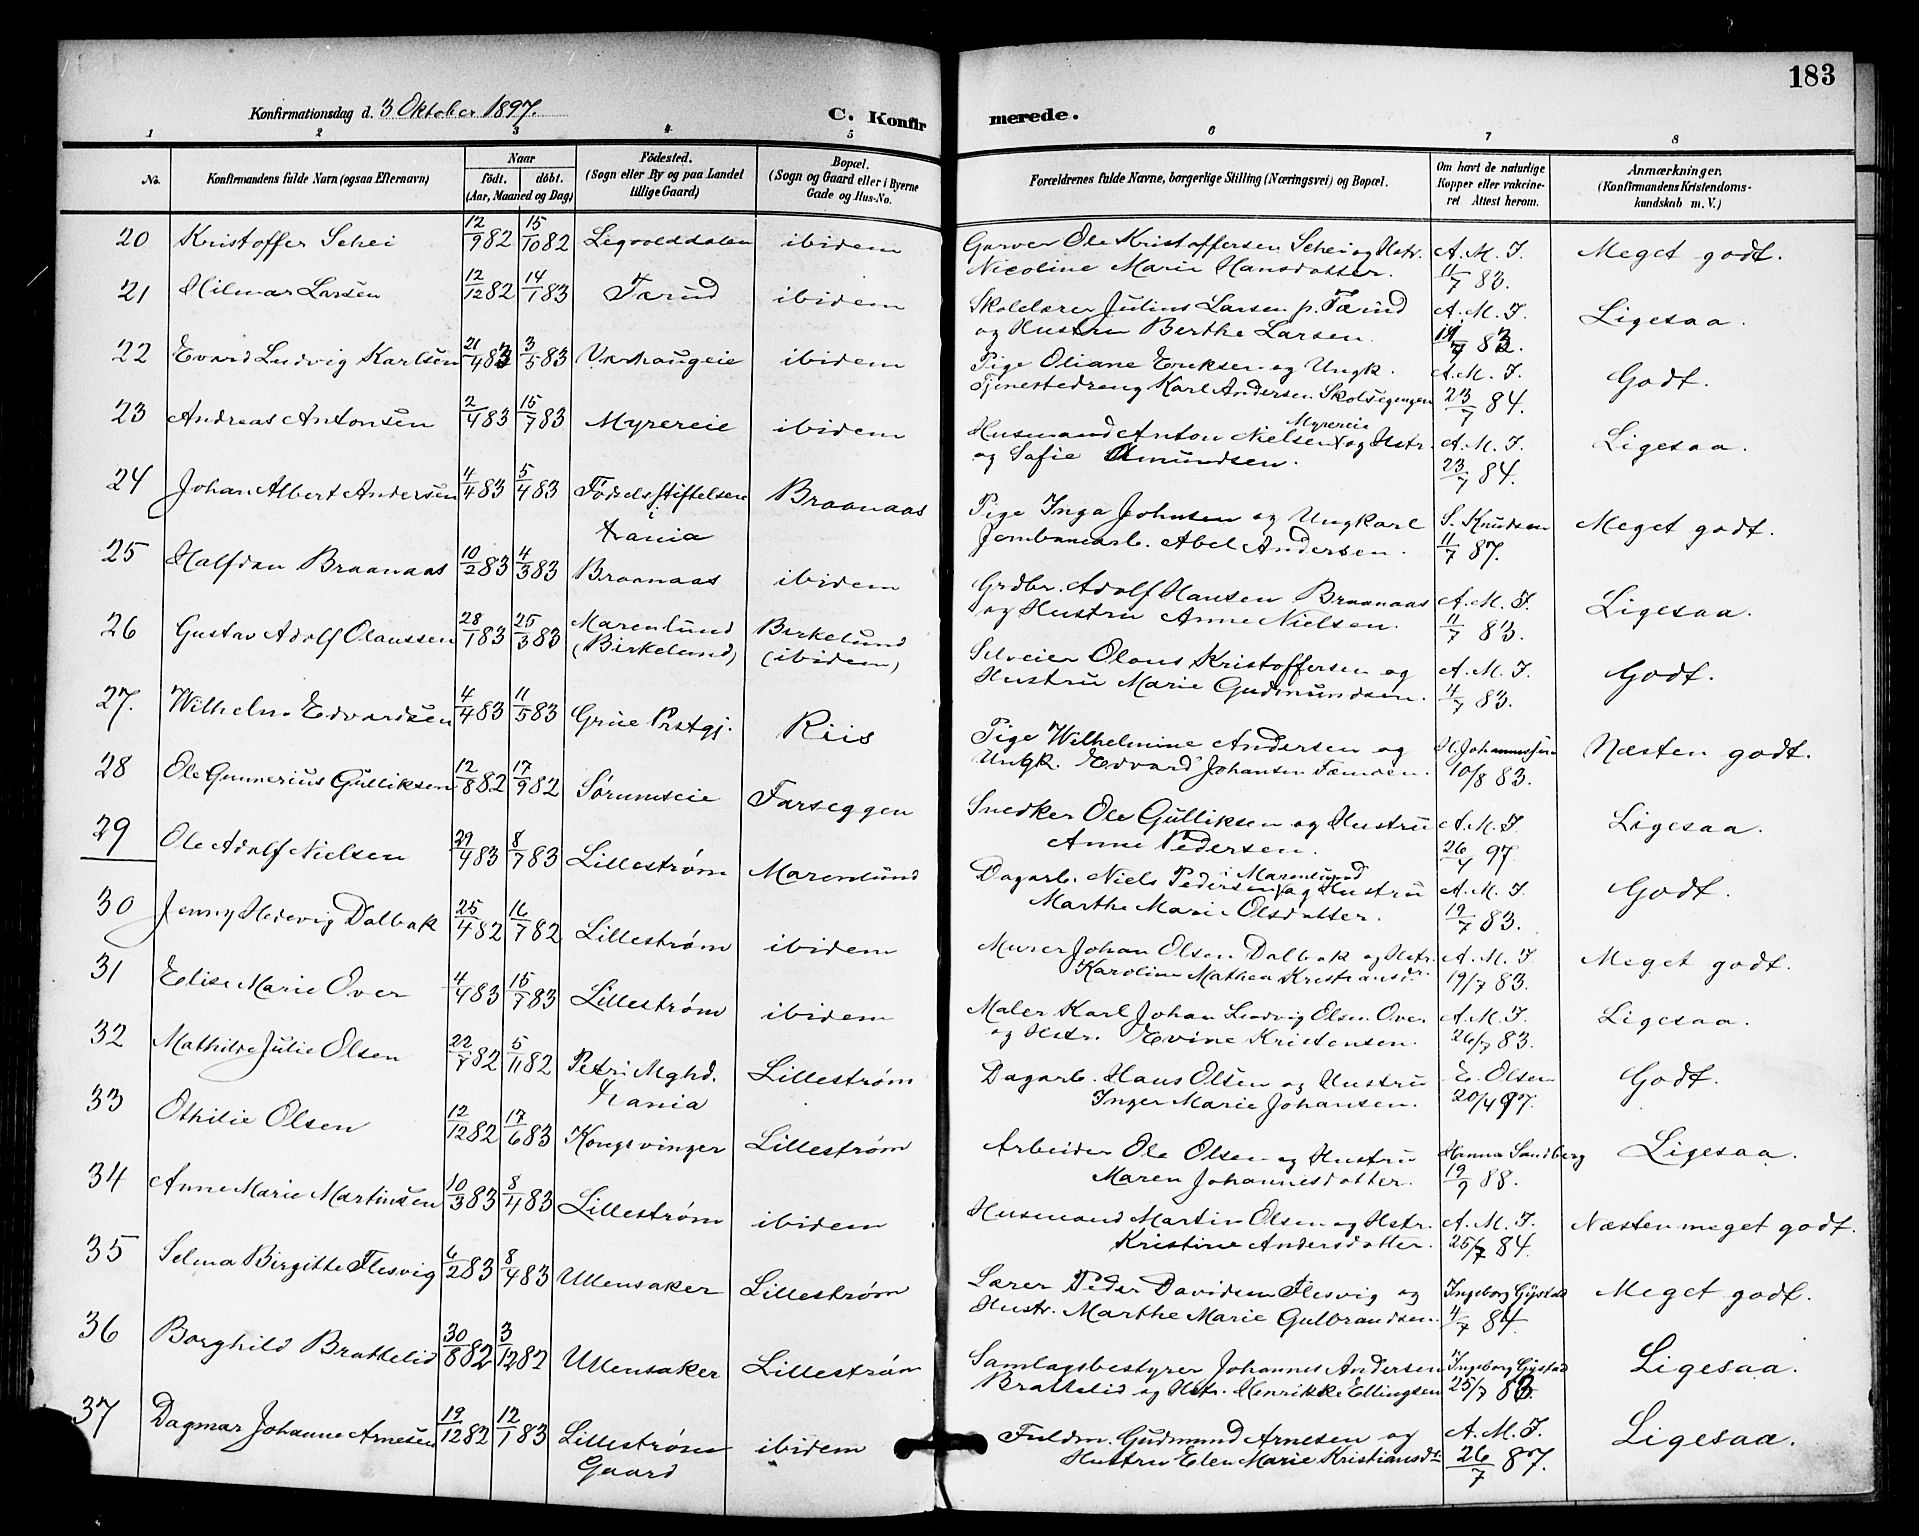 183
Konfirmationsdag d. 3 Oktober 1897.
C. Konfirmerede.
1 2 3 4 5 6 7 8
No. Konfirmandens fulde Navn (ogsaa Efternavn) Naar født. døbt. (Aar, Maaned og Dag) Fødested. (Sogn eller By og paa Landet tillige Gaard) Bopæl. (Sogn og Gaard eller i Byerne Gade og Hus-No. Forældrenes fulde Navne, borgerlige Stilling (Næringsvei) og Bopæl. Om havt de naturlige Kopper eller vakcineret Attest herom. Anmærkninger. (Konfirmandens Kristendomskundskab m. V.)
20 Kristoffer Schei 12/9 82 15/10 82 ibidem Garver Ole Kristoffersen Schei og Hstr. A. M. I. Meget godt.
Nicoline Marie Hansdatter. 11/7 83.
21 Hilmar Larsen 12/12 82 14/1 83 Færud ibidem Skolelærer Julius Larsen p. Færud A. M. I. Ligesaa.
og Hustru Berthe Larsen.
22 Evard Ludvig Karlsen 21/4 83 3/5 83 Varhaugeie ibidem Pige Oliane Eriksen og Ungk. A. M. I. Godt.
Tjenestedreng Karl Andersen 23/7 84.
23 Andreas Antonsen 2/4 83 15/7 83 Myrereie ibidem Husmand Anton Nielsen Myrereie og Hstr. A. M. I. Ligesaa.
og Sofie Amundsen. 23/7 84.
24 Johan Albert Andersen 4/4 83 5/4 83 Fødselsstiftelsen Braanaas Pige Inga Johnsen og Ungkarl S. Knudsen Meget godt.
i Krania Jernbanearb. Abel Andersen. 11/7 87.
25 Halfdan Braanaas 10/2 83 4/3 83 Braanaas ibidem Grdbr. Adolf Hansen Braanaas A. M. I. Ligesaa.
og Hustru Anne Nielsen. 11/7 83.
26 Gustav Adolf Olaussen 28/1 83 25/3 83 Marenlund Birkelund Selveier Olaus Kristoffersen og A. M. I. Godt.
(Birkelund) (ibidem) Hustru Marie Gudmundsen. 4/7 83.
27. Wilhelm Edvardsen 4/4 83 11/5 83 Grue Prstgj. Riis Pige Wilhelmine Andersen og H. Johannessen Næsten godt.
Ungk. Edvard Johansen 10/8 83.
28 Ole Gunnerius Gulliksen 12/8 82 17/9 82 Sørumseie Farseggen Snedker Ole Gulliksen og Hustru A. M. I. Ligesaa.
Anne Pedersen. 26/4 97.
29 Ole Adolf Nielsen 29/4 83 8/7 83 Lillestrøm Marenlund Dagarb. Niels Pedersen i Marenlund og Hustru A. M. I. Godt.
Marthe Marie Olsdatter. 19/7 83.
30 Jenny Hedevig Dalbak 25/4 82 16/7 82 Lillestrøm ibidem Murer Johan Olsen Dalbak og Hstr. A. M. I Meget godt.
Karoline Mathea Kristiansdr. 19/7 83.
31 Elise Marie Over 4/4 83 15/7 83 Lillestrøm ibidem Maler Karl Johan Ludvig Olsen Over A. M. I. Ligesaa.
og Hstr. Evine Kristensen. 26/7 83.
32 Mathilde Julie Olsen 22/7 82 5/11 82 Petri Mghd. Lillestrøm Dagarb. Hans Olsen og Hustru E. Olsen Godt.
Krania Inger Marie Johansen. 20/4 97.
33 Othilie Olsen 12/12 82 17/6 83 Kongsvinger Lillestrøm Arbeider Ole Olsen og Hustru Hanna Sandberg Ligesaa.
Maren Johannesdatter. 19/9 88.
34 Anne Marie Martinsen 10/3 83 8/4 83 Lillestrøm ibidem Husmand Martin Olsen og Hstr. A. M. I. Næsten meget godt.
Kristine Andersdatter. 25/7 84.
35 Selma Birgitte Flesvig 6/2 83 8/4 83 Ullensaker Lillestrøm Lærer Peder Davidsen Flesvig og Ingeborg Gystad Meget godt.
Hustr. Marthe Marie Gulbrandsen. 4/7 84.
36 Borghild Brattelid 30/8 82 3/12 82 Ullensaker Lillestrøm Samlagsbestyrer Johannes Andersen Ingeborg Gystad Ligesaa.
Brattelid og Hstr. Henrikke Ellingsen
37 Dagmar Johanne Arnesen 19/12 82 12/1 83 Lillestrøm ibidem Fuldm. Gudmund Arnesen og A. M. I. Ligesaa.
Gaard Hustru Elen Marie Kristiansdt. 26/7 87.